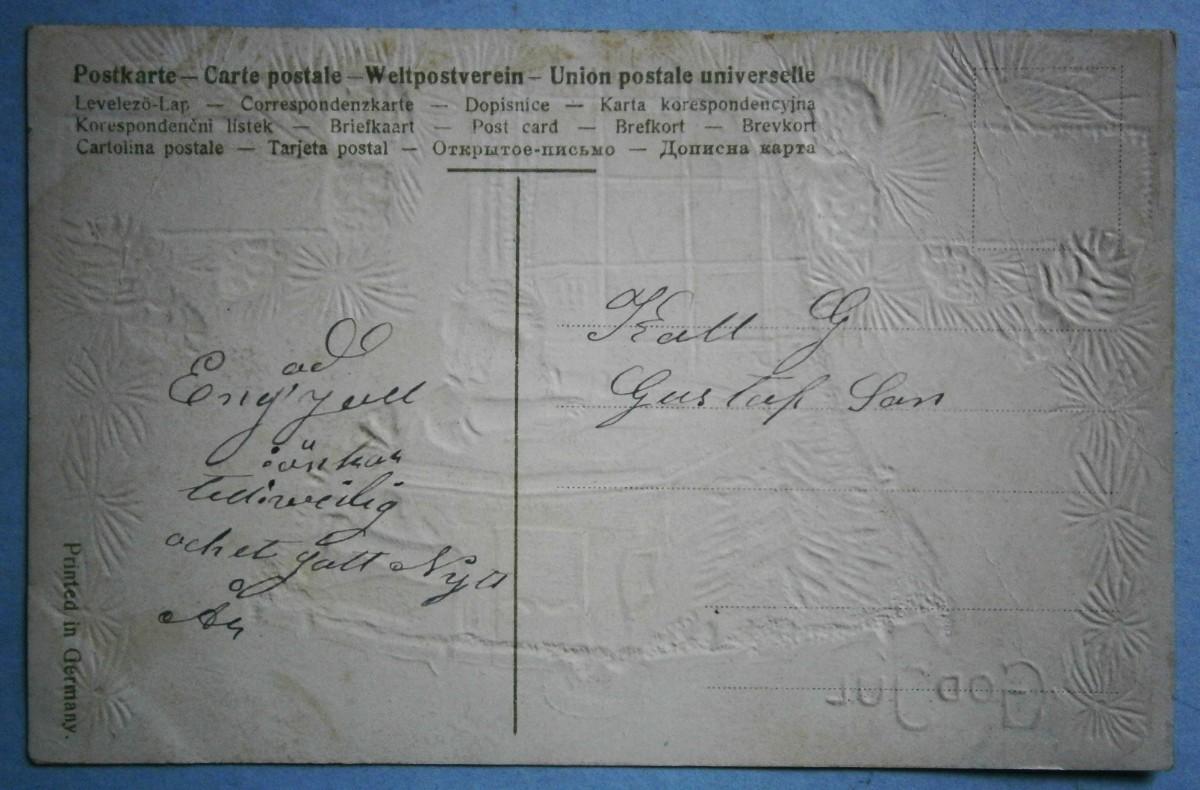 Postkarte — Carte postale — Weltpostverein — Union postale universelle
Levelezö-Lap — Correspondenzkarte — Dopisnice — Karta korespondencyjna
Korespondenčni listek — Briefkaart — Post card — Brefkort — Brevkort
Cartolina postale — Tarjeta postal — Открытое-письмо — Дописна карта
Kall G
Gustaf Son
Eng
önskar
och et gott Nytt
År
Printed in Germany.
God Jul